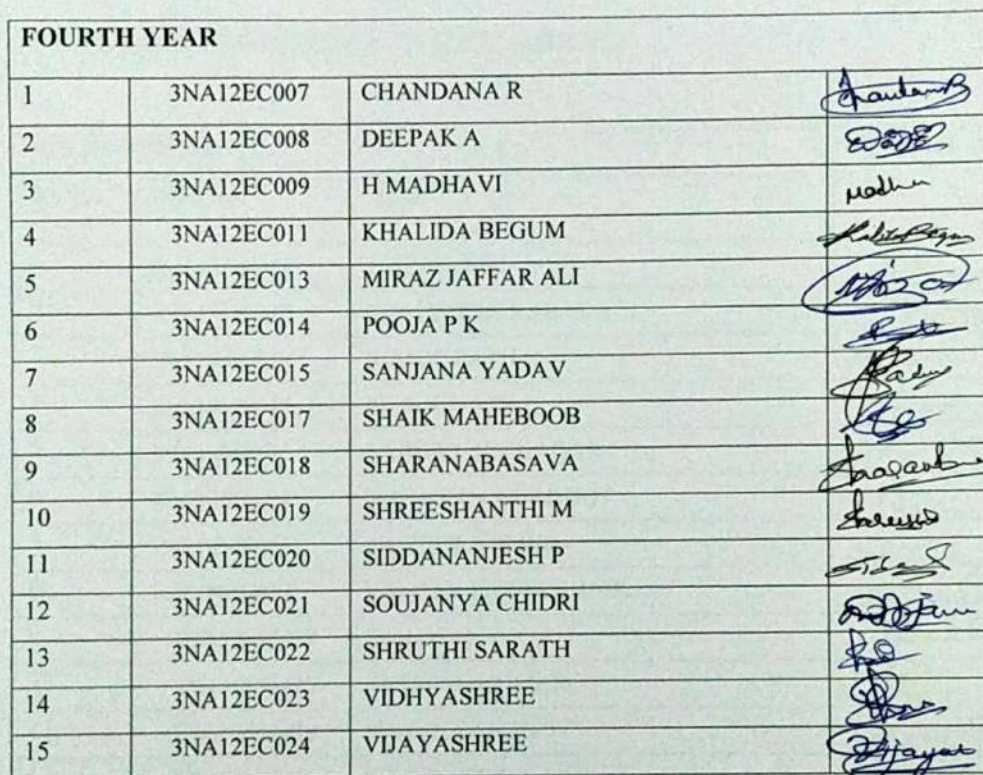 FOURTH YEAR
1 3NA12EC007 CHANDANA R
2 3NA12EC008 DEEPAK A
3 3NA12EC009 H MADHAVI Madhu
4 3NA12EC011 KHALIDA BEGUM
5 3NA12EC013 MIRAZ JAFFAR ALI
6 3NA12EC014 POOJA P K
7 3NA12EC015 SANJANA YADAV
8 3NA12EC017 SHAIK MAHEBOOB
9 3NA12EC018 SHARANABASAVA
10 3NA12EC019 SHREESHANTHI M
11 3NA12EC020 SIDDANANJESH P
12 3NA12EC021 SOUJANYA CHIDRI
13 3NA12EC022 SHRUTHI SARATH
14 3NA12EC023 VIDHYASHREE
15 3NA12EC024 VIJAYASHREE